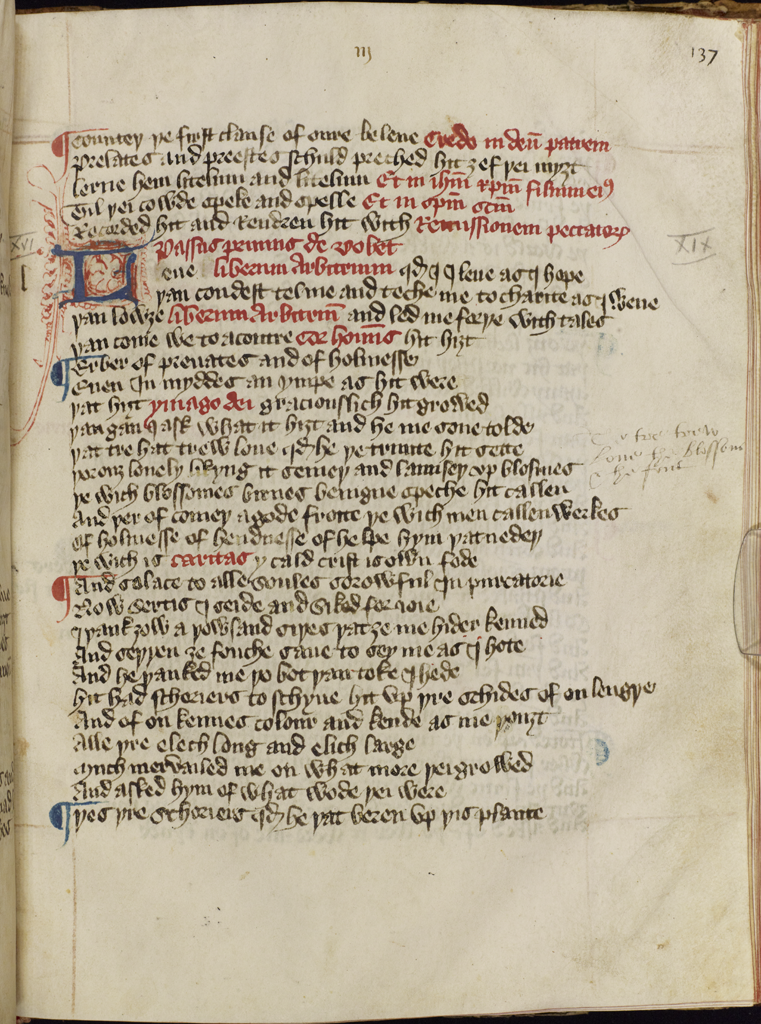 iij
137
Countey þe first clause of oure beleue Credo in deū patrem
Prelates and preestes schuld preched hit ȝef þei myȝt
Lerne hem litelum and litelum Et in ihm̄ xpm̄ filium eiꝰ
Til þei cowde speke and spelle Et in spm̄ scm̄
Recorded hit and rendren hit with Remissionem peccatorꝝ
XVI
Passus primus de dobet
XIX
Leue liberum Arbitrium qd I I leue as I hope
þou coudest tel me and teche me to charite as I wene
þan lowȝe liberum Arbitriū and led me forþe with tales
þan come we to a contre Cor hominis hit hiȝt
Erber of preuates and of holinesse
Euen In myddes an ympe as hit were
þat hiȝt ymago dei graciousslich hit growed
þan gan I ask what it hiȝt and he me sone tolde
þat tre hat trew loue qd he þe trinite hit sette
þoruȝ louely likyng it semeþ and launseþ vp blosmes
þe wich blossomes burnes benigne speche hit callen
And þer of comeþ a gode froite þe wich men callen werkes
Of holinesse of hendnesse of helpe hym þat nedeþ
þe wich is caritas y cald crist is own fode
And solace to alle soules sorowful In purcatorie
Now sertis I seide and siked for ioie
I þank ȝow a þowsand siþes þat ȝe me hider kenned
And seþþen ȝe fouche saue to sey me as I hote
And he þanked me þo bot þan toke I hede
hit had schoriers to schyue hit vp þre schides of on lengþe
And of on kennes colour and kende as me þouȝt
Alle þre elech long and elich large
Mych meruailed me on what more þei growed
And asked hym of what wode þei were
þes þre schoriers qd he þat beren vp þis plante
tre trew
loue the blossom
the fruit